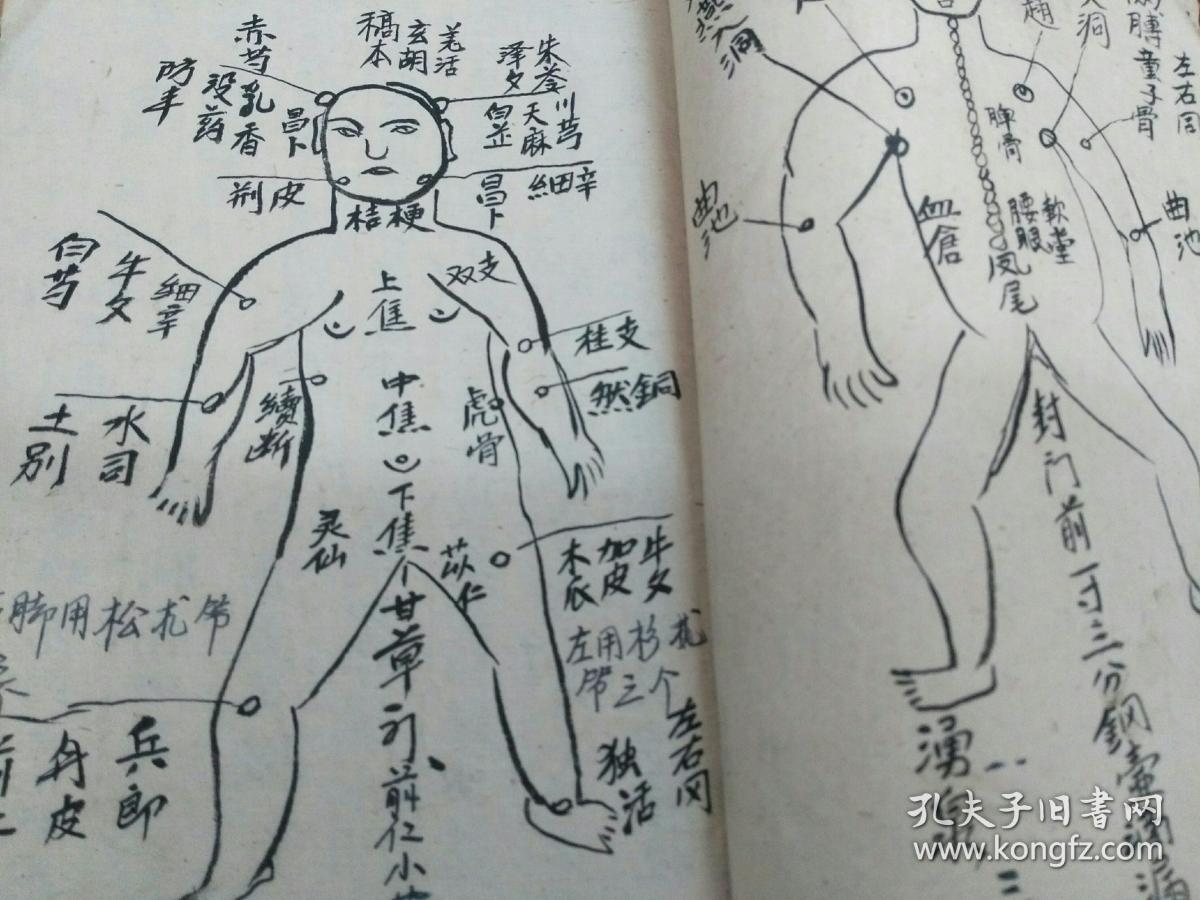 赤芍
乳香
没药
防丰
稿本
玄胡
羌活
泽夕
朱苓
川芎
天麻
白芷
昌卜
荆皮
昌卜
細辛
桔梗
白芍
牛夕
細辛
上焦
双支
桂支
然銅
土别
水司
續断
中焦
虎骨
下焦
灵仙
苡仁
木瓜
加皮
牛夕
脚用松扰节
左用杉扰
节三个
左右同
独活
甘草
前仁小
兵郎
丹皮
洞
膊童子骨
左右同
脾骨
曲池
曲池
血倉
腰眼
軟堂
凤尾
封门前一寸三分銅壶滴漏
湧泉
孔夫子旧书网
www.kongfz.com